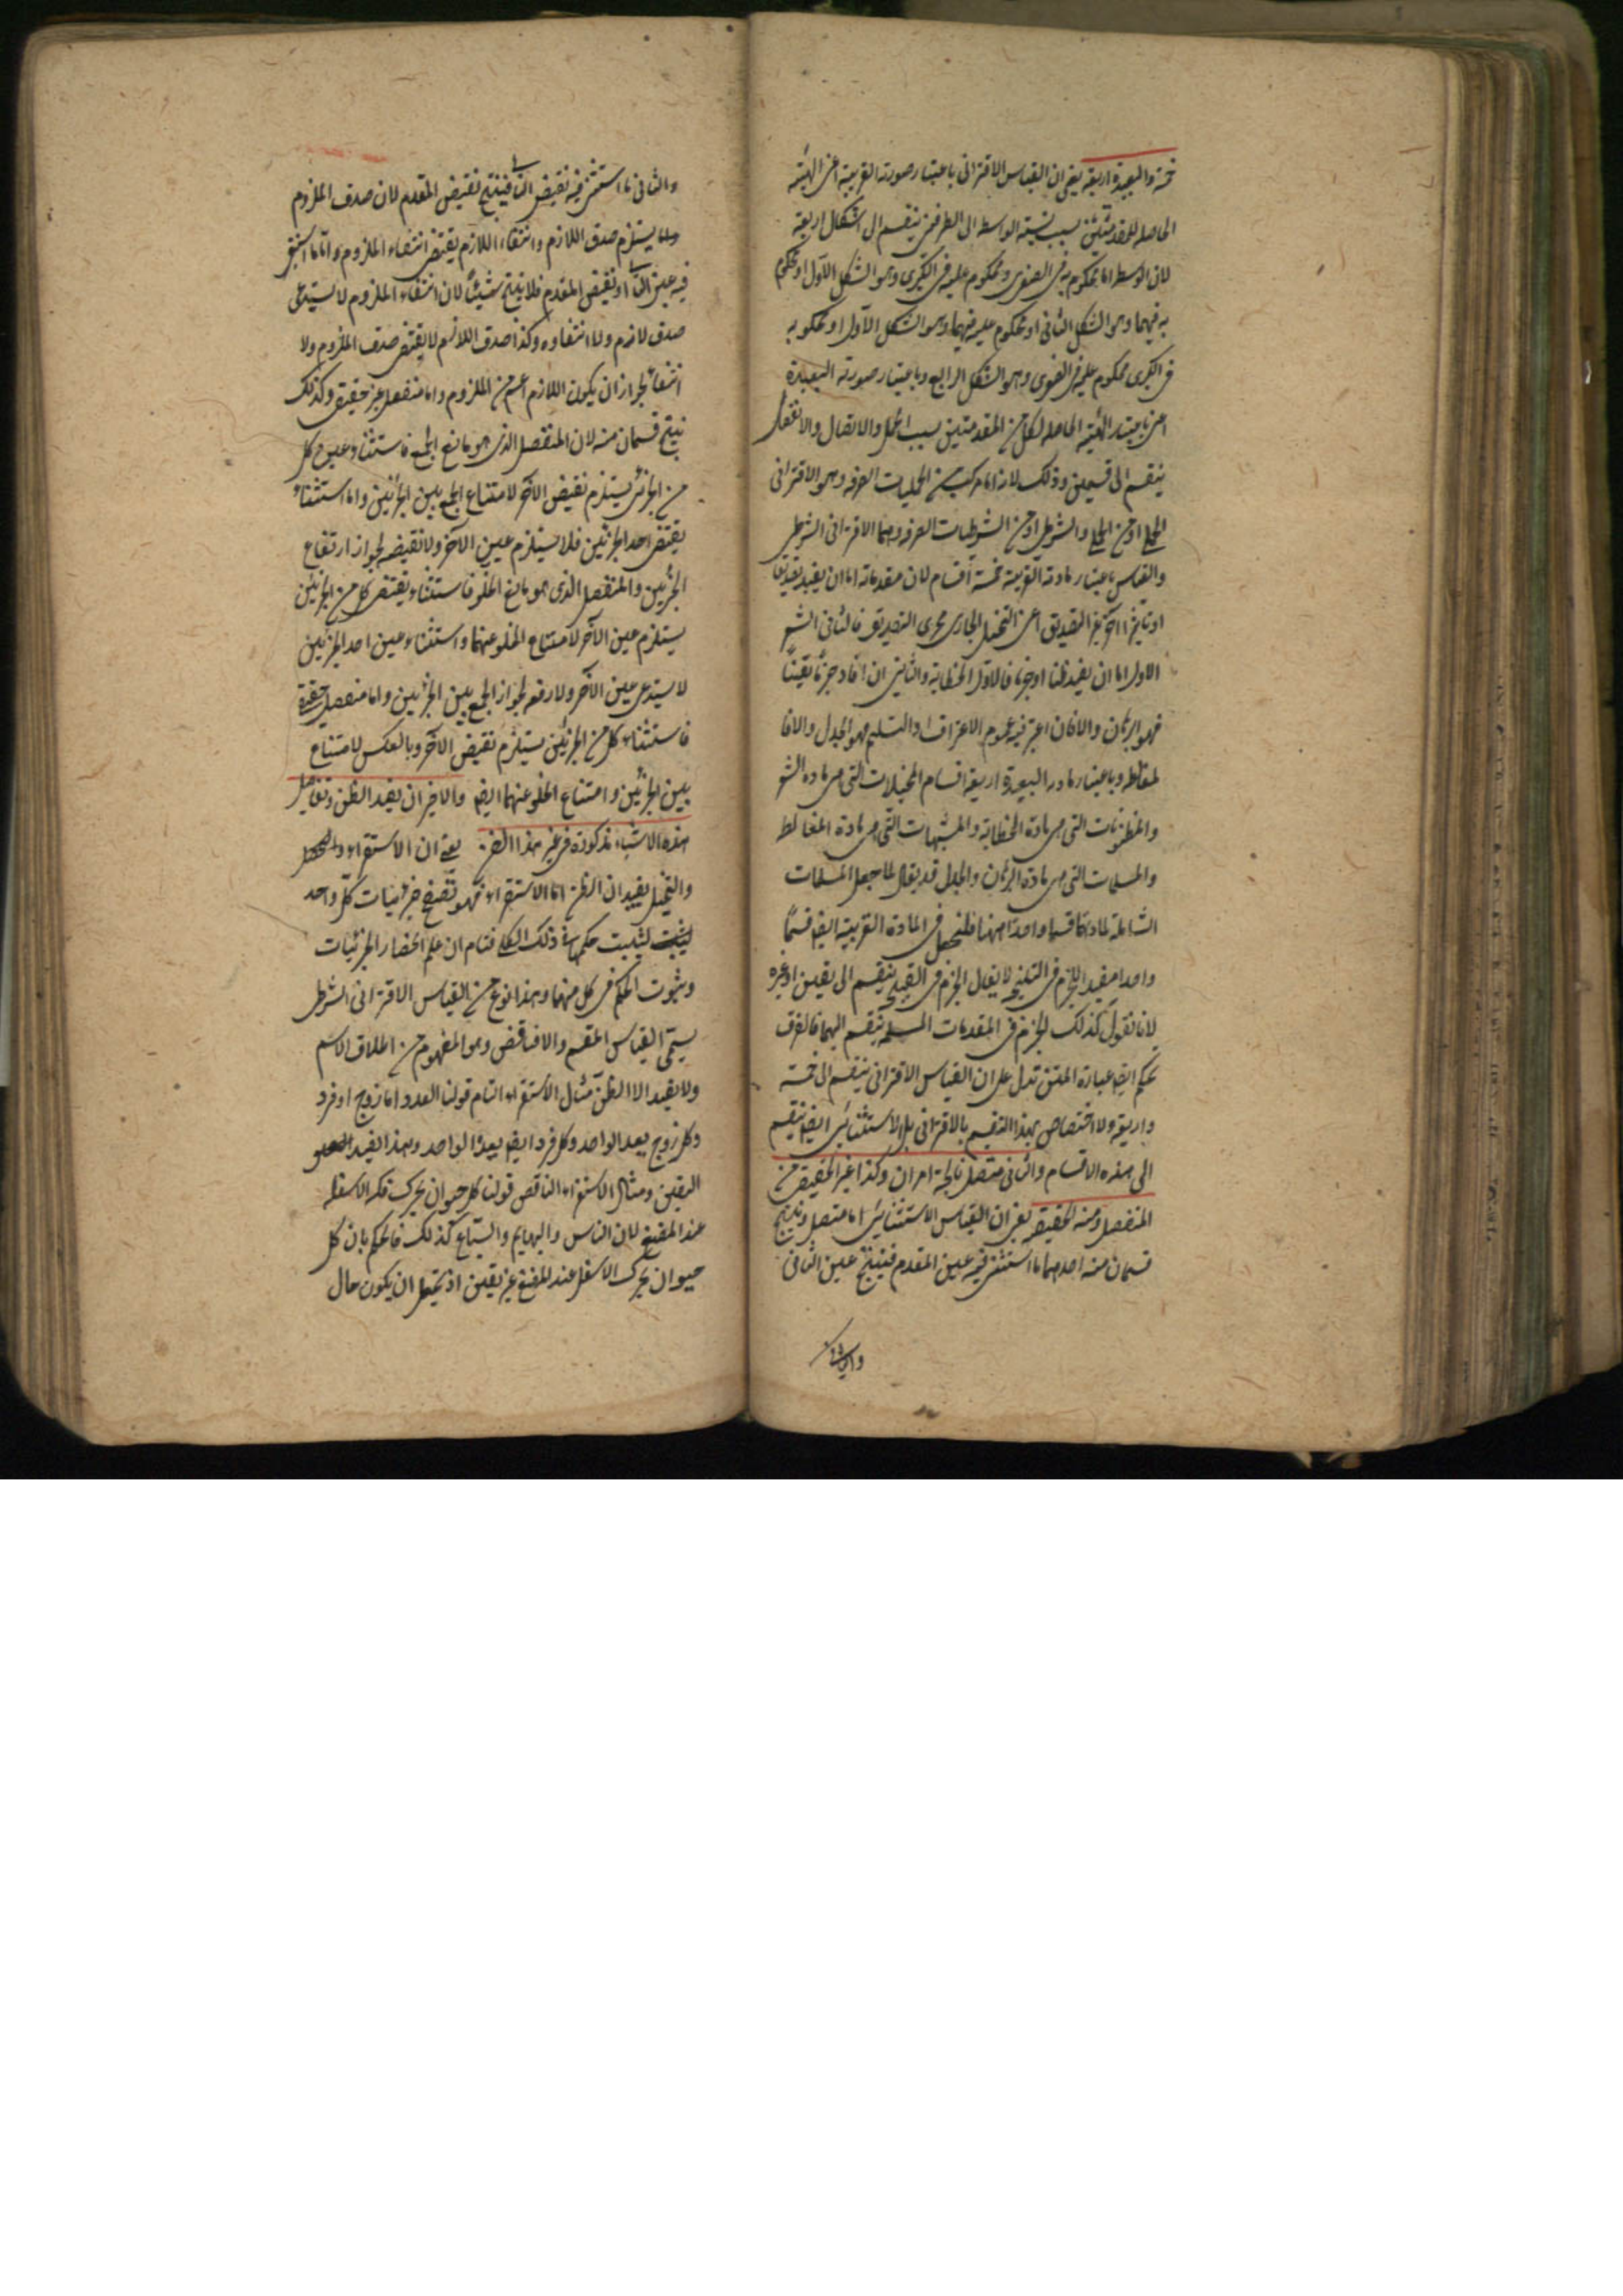 خمسة والبعيدة اربعة يعنى ان القياس الاقترانى باعتبار صورته القريبة اعنى الهيئة
الحاصلة للمقدمتين بسبب نسبة الوسط الى الطرفين ينقسم الى اشكال اربعة
لان الوسط اما محكوم به فى الصغرى ومحكوم عليه فى الكبرى وهو الشكل الاول او محكوم
به فيهما وهو الشكل الثانى او محكوم عليه فيهما وهو الشكل الاول او محكو به
فى الكبرى محكوم عليه فى الصغرى وهو الشكل الرابع وباعتبار صورته البعيدة
اعنى باعتبار الهيئة الحاصلة لكل من المقدمتين بسبب الحمل والاتصال والانفصال
ينقسم الى قسمين وذلك لانه اما مركب من الحمليات الصرفة وهو الاقترانى
الحملى او من الحملى والشرطى او من الشرطيات الصرفة وهما الاقترانى الشرطى
والقياس باعتبار مادته القريبة خمسة اقسام لان مقدماته اما ان يفيد تصديقا
او تاثيرا آخر غير التصديق اعنى التخييل الجارى مجرى التصديق فالثانى الشعر
الاول اما ان يفيد ظنا او جزما فالاول الخطابة والثانى ان افاد جزما يقينا
فهو البرهان والا فان اعتبر فيه عموم الاعتراف او التسليم فهو الجدل والا فا
لمغالطة وباعتبار مادته البعيدة اربعة اقسام المخيلات التى هى مادة الشعر
والمظنونات التى هى مادة الخطابة والمشبهات التى هى مادة المغالط
والمسلمات التى هى مادة البرهان والجدل قد يقال لما جعل المسلمات
الشاملة لمادتهما قسما واحدا ههنا فليجعل فى المادة القريبة ايضا قسما
واحدا مفيد للجزم فى النتيجة لا يقال الجزم فى النتيجة ينقسم الى يقين او غيره
لانا نقول كذلك الجزم فى المقدمات المسلمة ينقسم اليهما فالفرق
تحكم ايضا عبارة المتن تدل على ان القياس الاقترانى ينقسم الى خمسة
واربعة ولا اختصاص بهذا التقسيم بالاقترانى بل الاستثنائى ايضا ينقسم
الى هذه الاقسام والثانى متصل ناتجة امران وكذا غير الحقيقى من
المنفصل ومنه الحقيقة يعنى ان القياس الاستثنائى اما متصل وينتج
قسمان منه احدهما ما استثنى فيه عين المقدم فينتج عين الثانى
والثانى ما استثنى فيه نقيض التا فينتج نقيض المقدم لان صدق الملزوم
يستلزم صدق اللازم وانتفاء اللازم يقتضى انتفاء الملزوم واما ما استثنى
فيه عين التا او نقيض المقدم فلا ينتج شيئا لان انتفاء الملزوم لا يستدعى
صدق لازم ولا انتفاوه وكذا صدق اللازم لا يقتضى صدق الملزوم ولا
انتفائه لجواز ان يكون اللازم اعم من الملزوم واما منفصل غير حقيقى وكذلك
ينتج قسمان منه لان المنفصل الذى هو مانع الجمع فاستثناء عين كل
من الجزئى يستلزم نقيض الآخر لامتناع الجمع بين الجزئين واما استثناء
نقيض احد الجزئين فلا يستلزم عين الآخر ولا نقيضه لجواز ارتفاع
الجزئين والمنفصل الذى هو مانع الخلو فاستثناء نقيض كل من الجزئين
يستلزم عين الآخر لامتناع الخلو عنهما واستثناء عين احد الجزئين
لا يستدعى عين الآخر ولا رفعه لجواز الجمع بين الجزئين واما منفصل حقيقة
فاستثناء كل من الجزئين يستلزم نقيض الآخر وبالعكس لامتناع
بين الجزئين وامتناع الخلو عنهما ايضا والاخيران يفيد الظن وتفاصيل
هذه الاشياء مذكورة فى غير هذا الفن يعنى ان الاستقراء
والتمثيل يفيدان الظن اما الاستقراء فهو تصفح جزئيات كل واحد
ليثبت حكمها فى ذلك الكلى فتام ان علم انحصار الجزئيات
وثبوت الحكم فى كل منهما وهذا نوع من القياس الاقترانى الشرطى
يسمى القياس المقسم والا فناقض وهو المفهوم من اطلاق الاسم
ولا يفيد الا الظن مثال الاستقراء التام قولنا العدد اما زوج او فرد
وكل زوج يعد الواحد وكل فرد ايضا يعد الواحد وهذا يفيد
اليقين ومثال الاستقراء الناقص قولنا كل حيوان يحرك فكه الاسفل
عند المضغ لان الناس والبهايم والسباع كذلك فالحكم بان كل
حيوان يحرك الاسفل عند المضغ غير يقين اذ يحتمل ان يكون حال